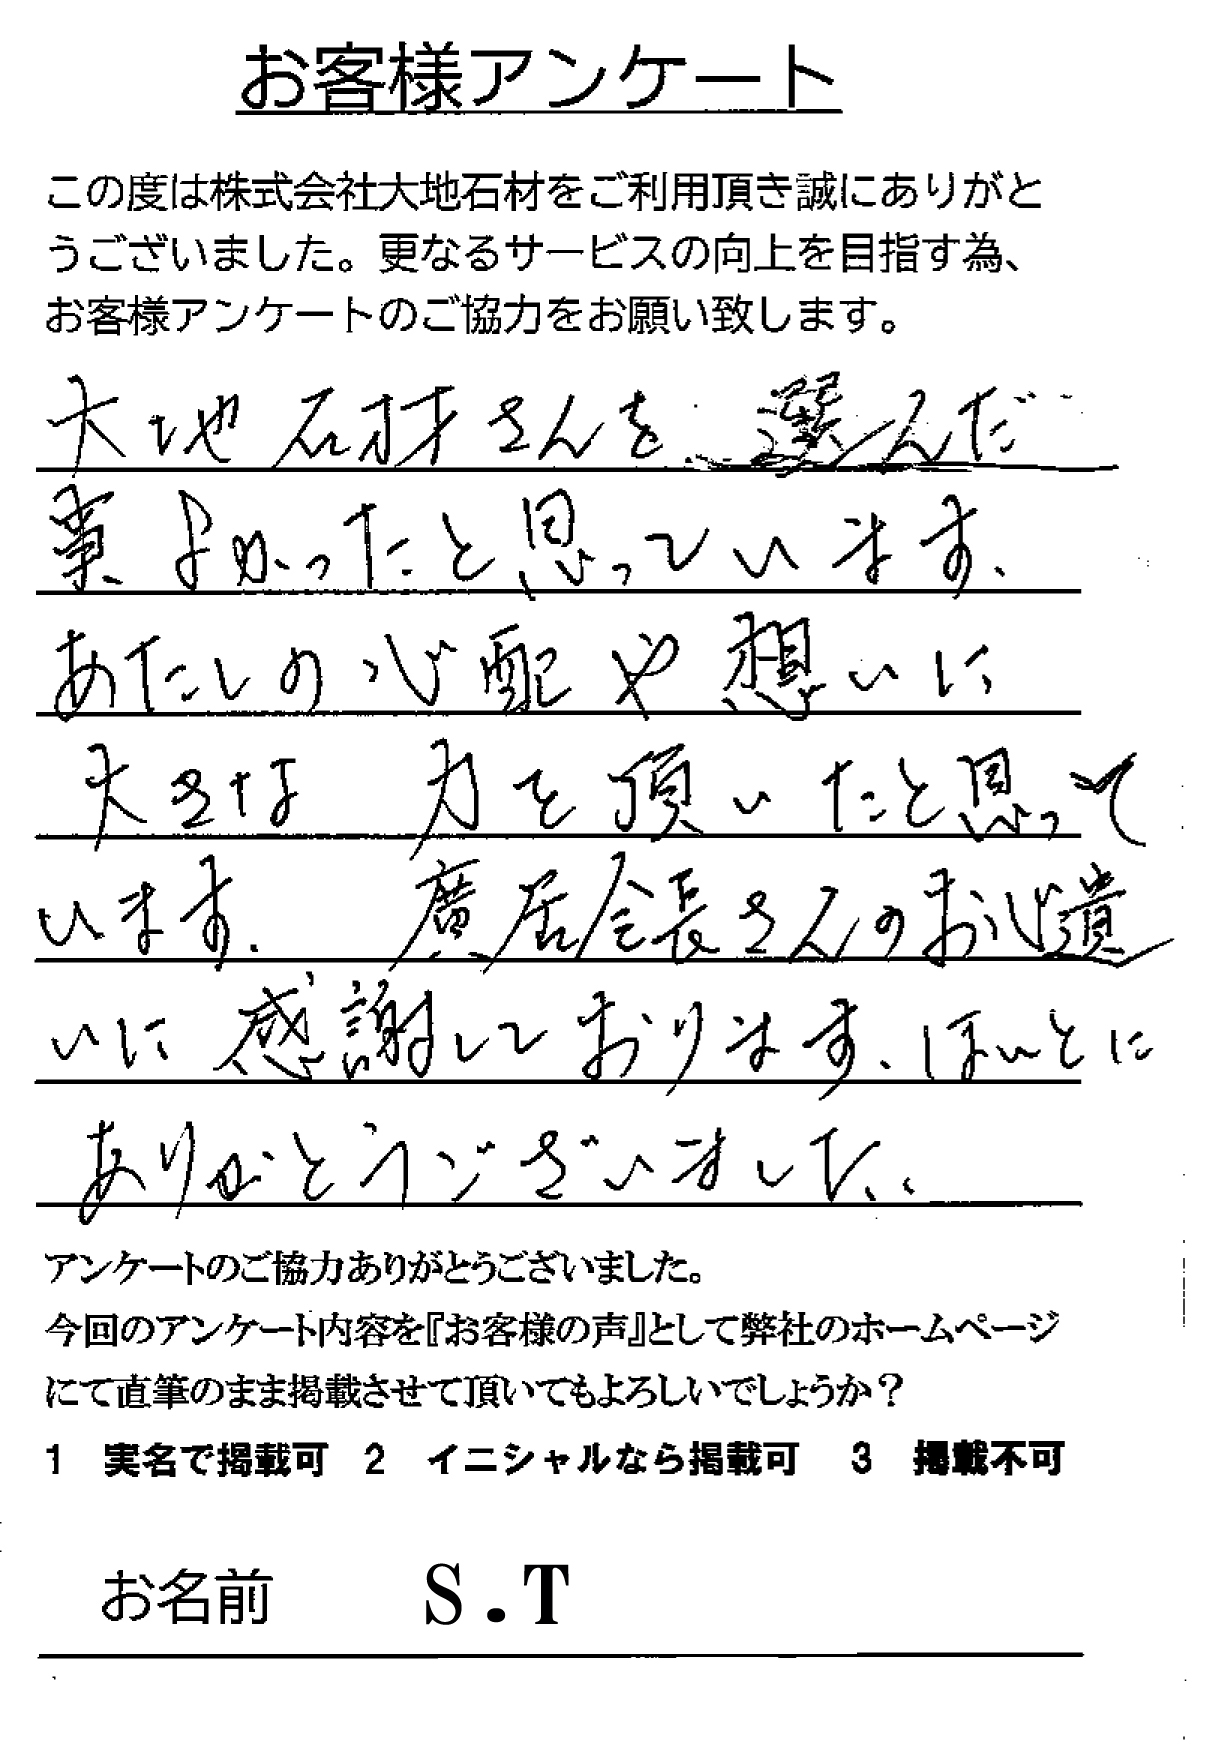 お客様アンケート
この度は株式会社大地石材をご利用頂き誠にありがと
うございました。更なるサービスの向上を目指す為、
お客様アンケートのご協力をお願い致します。
大地石材さんを選んだ
事よかったと思っています、
あたしの心配や想いに
大きな 力を頂いたと思って
います. 廣居会長さんのお心遺
いに感謝しております、ほんとに
ありがとうございました、、
アンケートのご協力ありがとうございました。
今回のアンケート内容を『お客様の声』として弊社のホームページ
にて直筆のまま掲載させて頂いてもよろしいでしょうか？
1 実名で掲載可 2 イニシャルなら掲載可 3 掲載不可
お名前 S.T